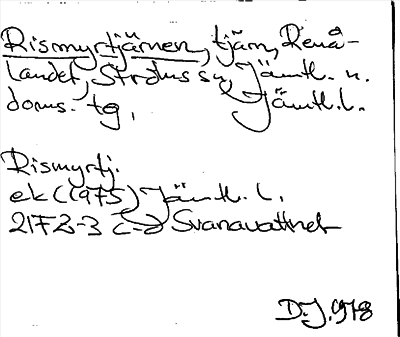 Rismyrtjärnen, tjärn, Renå-
landet, Ströms sn, Jämtl. n.
doms. tg, Jämtl. l.
Rismyrtj.
ek (1975) Jämtl. l.
217 2-3 c-d Svanavattnet
D.J. 1978